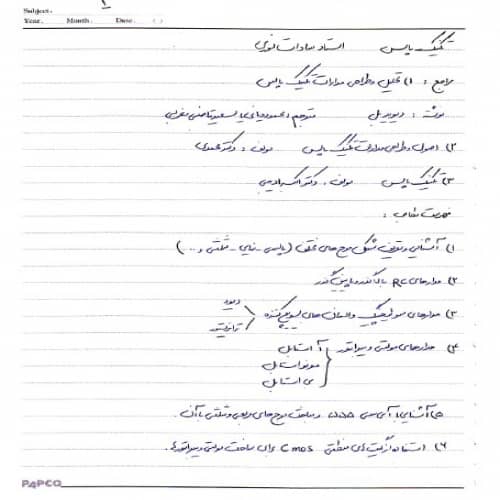 Subject:
Year. Month. Date. ( )
۱
تکنیک پالس استاد سادات نوری
مراجع : ۱) تحلیل و طراحی مدارات تکنیک پالس
نوشته : دیوید بل مترجم :
۲) اصول و طراحی مدارات تکنیک پالس مولف : دکتر عبدی
۳) تکنیک پالس مولف : دکتر
فهرست مطالب :
۱) آشنایی و تعریف شکل موج های مختلف (پالسی - نمایی - مثلثی و ...)
۲) مدارهای RC بالاگذر و پایین گذر
۳) مدارهای سوئیچینگ و المان های سوییچ کننده دیود
ترانزیستور
۴) مدارهای مولتی ویبراتور آ استابل
مونو استابل
بی استابل
۵) آشنایی با آی سی ۵۵۵ و ساخت موج های مربعی و مثلثی با آن.
۶) استفاده از گیت های منطقی Cmos برای ساخت مولتی ویبراتورها.
PAPCO